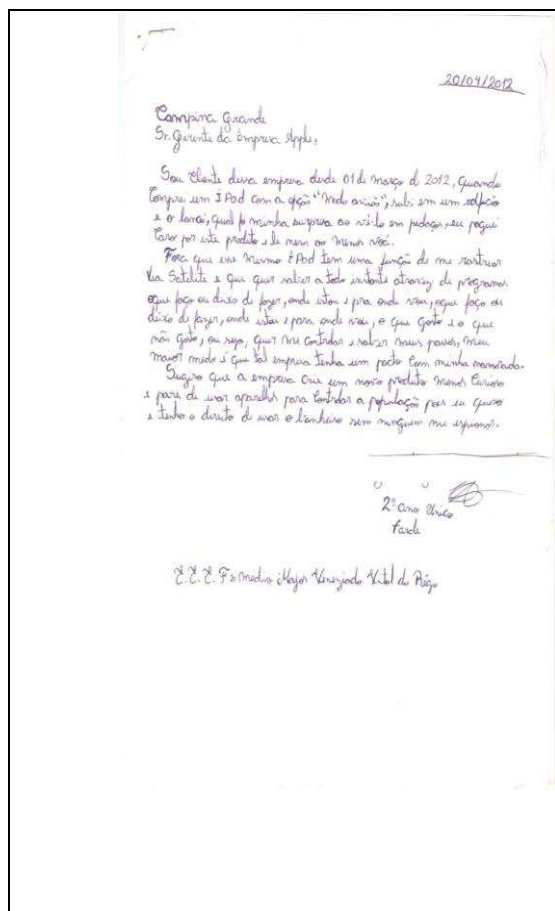 20/04/2012
Campina Grande
Sr. Gerente da Empresa Apple,
Sou cliente dessa empresa desde 01 de março d 2012, quando
comprei um iPod com a opção "modo avião", subi em um edifício
e o lancei, qual foi minha surpresa ao vê-lo em pedaços, eu paguei
caro por este produto e ele nem ao menos voa.
Fora que esse mesmo iPod tem uma função de me rastrear
via Satelite e que quer saber a todo instante atravez de programas
oque faço ou deixo de fazer, onde estou e pra onde vou, oque faço ou
deixo de fazer, onde estou e para onde vou, o que gosto e o que
não gosto, ou seja, quer me controlar e saber meus passos, meu
maior medo é que tal empresa tenha um pacto com minha namorada.
Sugiro que a empresa crie um novo produto menos curioso
e pare de usar aparelhos para controlar a população pois eu quero
e tenho o direito de usar o banheiro sem ninguem me espionar.
2º ano Único
tarde
E.E.E. F e Medio Major Veneziado Vital do Rêgo